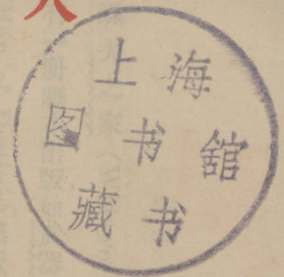 上海
图书舘
藏书